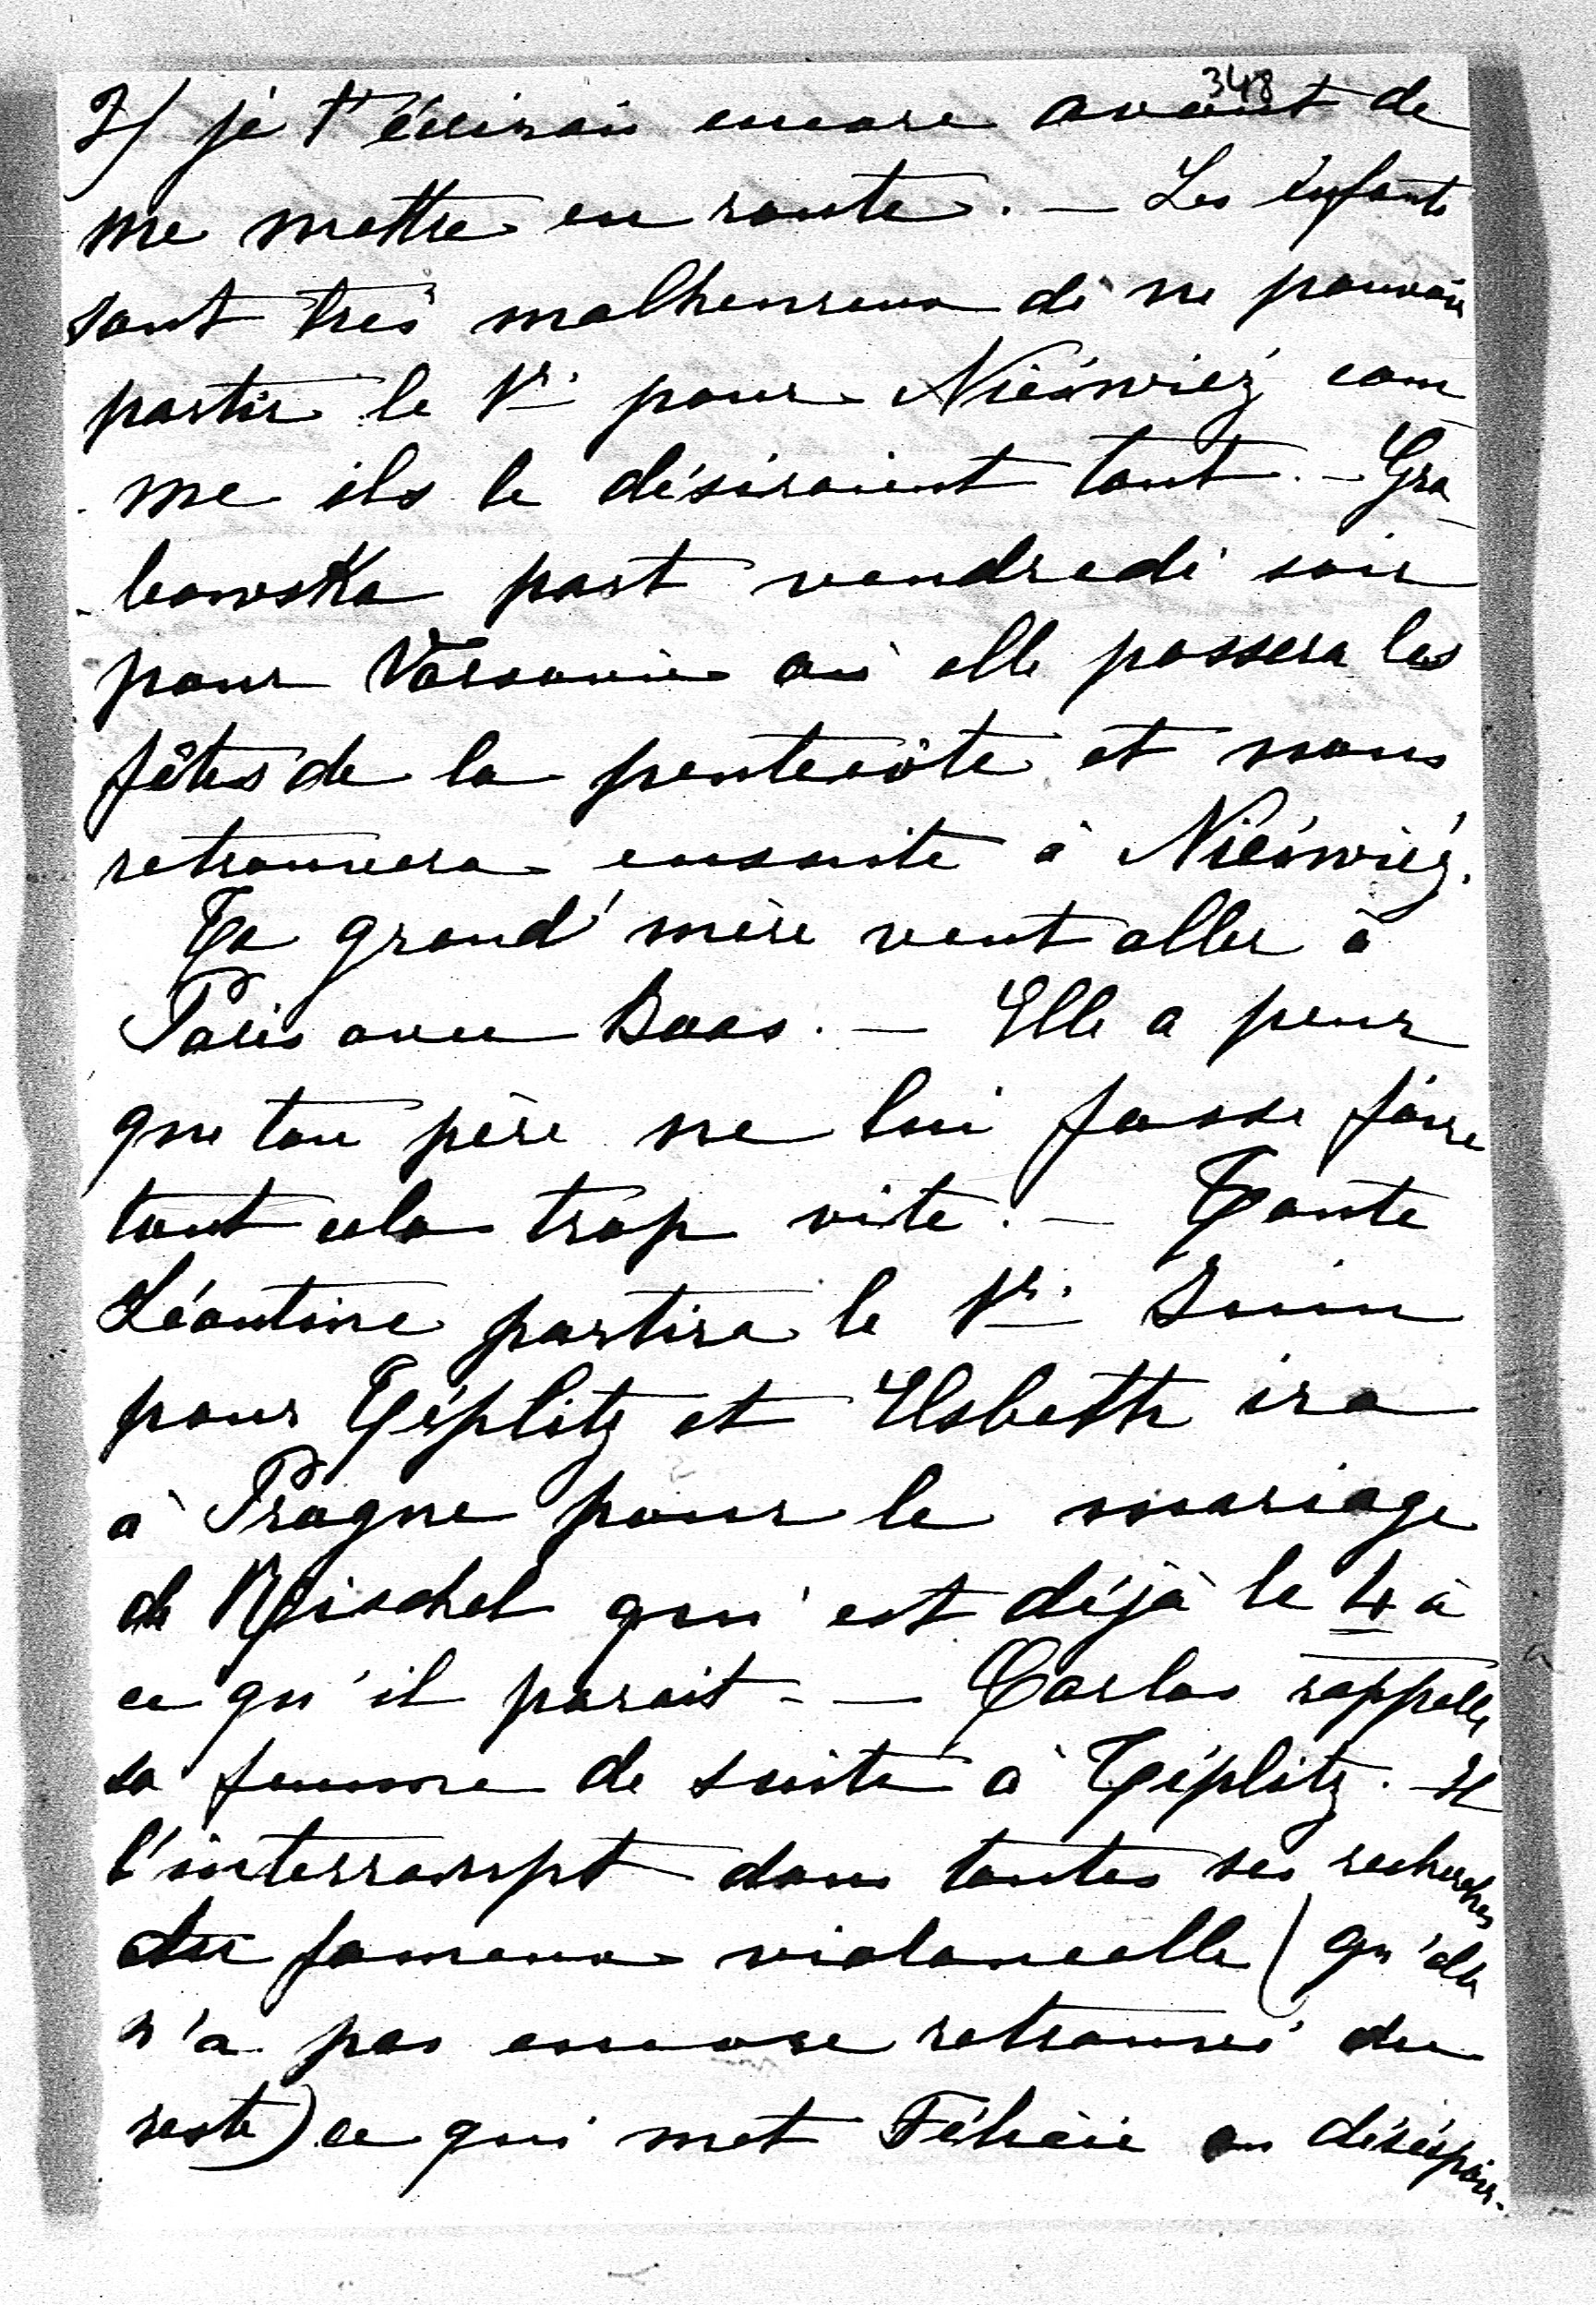 348
3/ je t'écrirai encore avant de
me mettre en route. — Les enfants
sont très malheureux de ne pouvoir
partir le 1er pour Nieświéz com
me ils le désiraient tant. — Gra
bowska part vendredi soir
pour Varsovie où elle passera les
fêtes de la pentecôte et nous
retrouvera ensuite à Nieświéz.
Ta grand'mère veut aller à
Paris avec Boos. — Elle a peur
que ton père ne lui fasse faire
tout cela trop vite. — Tante
Léontine partira le 1er Juin
pour Téplitz et Elsbeth ira
à Prague pour le mariage
de Mischel qui est déjà le 4 à
ce qu'il parait. — Carlos rappelle
sa femme de suite à Téplitz. Il
l'interrompt dans toutes ses recherches
du fameux violoncelle (qu'elle
n'a pas encore retrouvé du
reste) ce qui met Félicie au déséspoir.